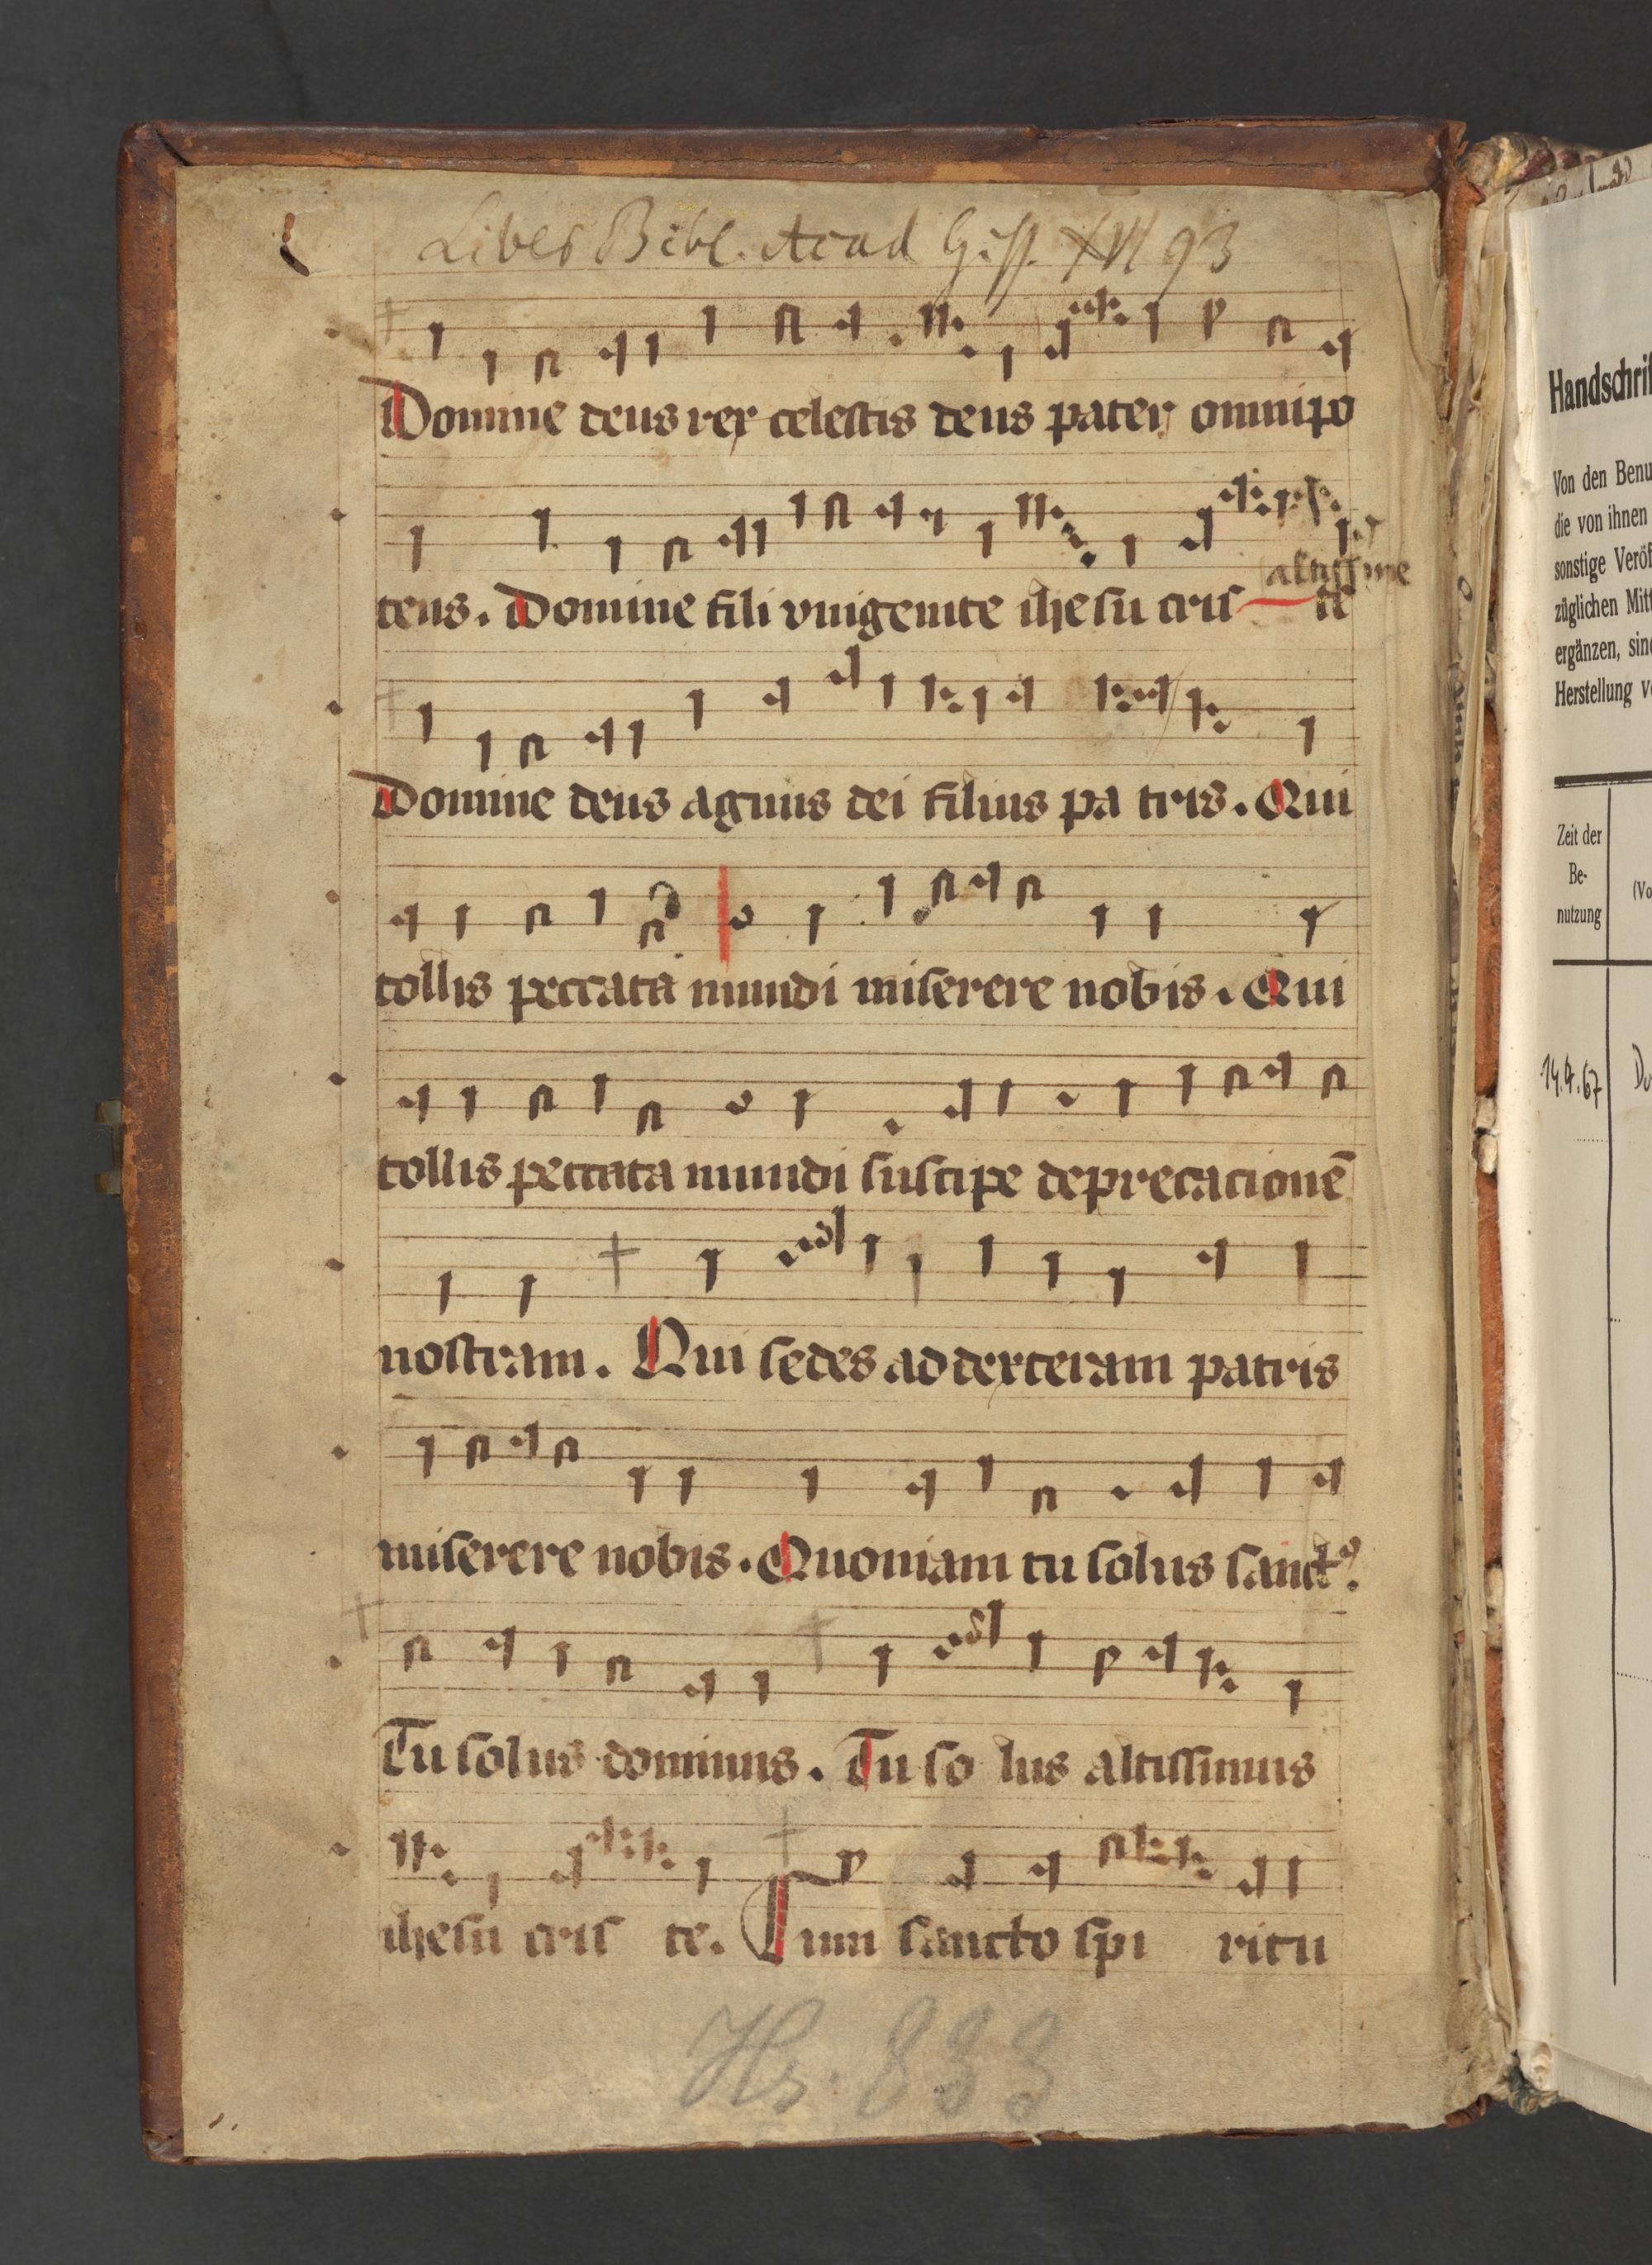 Liber Bibl. Acad Giss. XVI 93
Domine deus rex celestis deus pater omnipo
tens. Domine fili vnigenite ihesu cris te
altissime
Domine deus agnus dei filius pa tris. Qui
tollis peccata mundi miserere nobis. Qui
tollis peccata mundi suscipe deprecacionē
nostram. Qui sedes ad dexteram patris
miserere nobis. Quoniam tu solus sanctꝰ.
Tu solus dominus. Tu so lus altissimus
ihesu cris te. Cum sancto spi ritu
Hs. 883
Handschrif
Von den Benu
die von ihnen
sonstige Veröf
züglichen Mitt
ergänzen, sin
Herstellung v
Zeit der
Be-
nutzung
(Vo
14.4.67